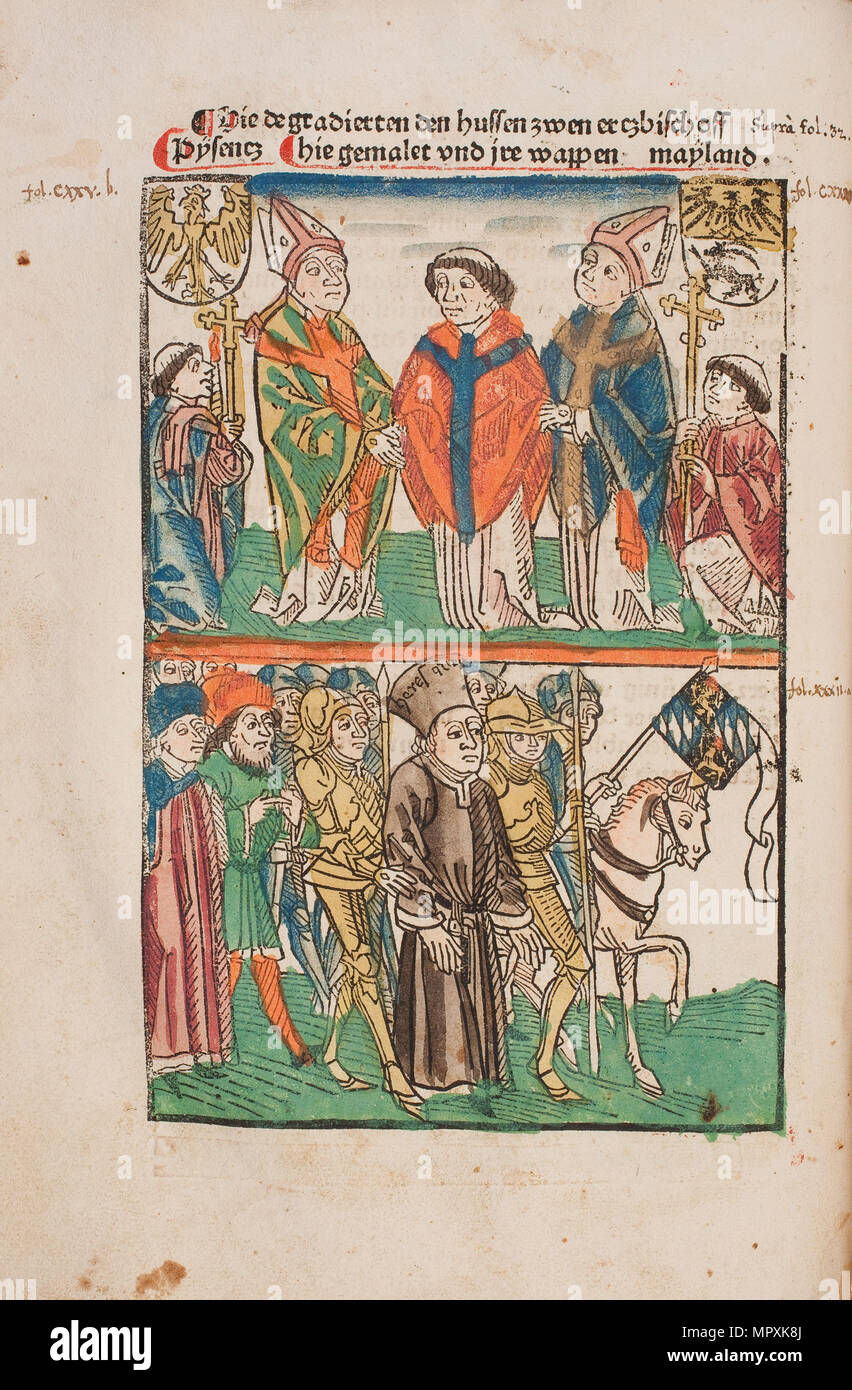 Hie degradierten den hussen zwen ertzbischoff Supra fol. 32.
Pysentz hie gemalet vnd jre wappen mayland.
fol. cxxv. b.
heresi
fol. xxxii. a
alamy
Image ID: MPXK8J
www.alamy.com